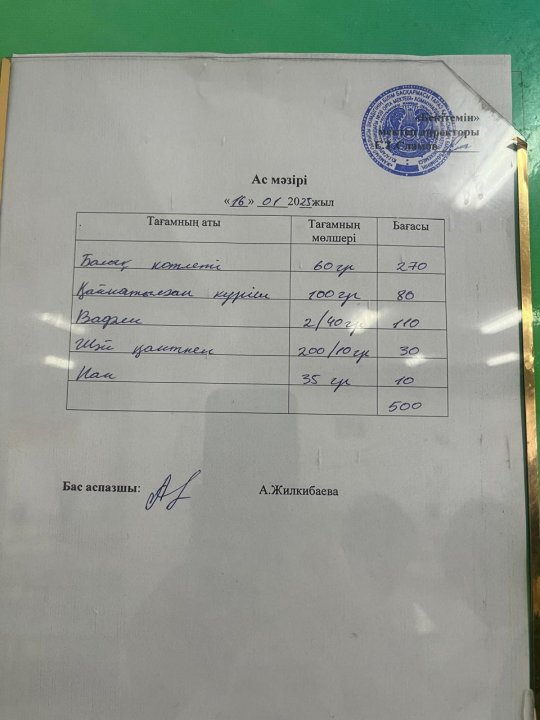 «Бекітемін»
мектеп директоры
Ас мәзірі
«16» 01 2025 жыл
Тағамның аты Тағамның мөлшері Бағасы
Балық котлеті 60 гр 270
Қайнатылған күріш 100 гр 80
Вафли 2/40 гр 110
Шәй қантпен 200/10 гр 30
Нан 35 гр 10
500
Бас аспазшы: А.Жилкибаева